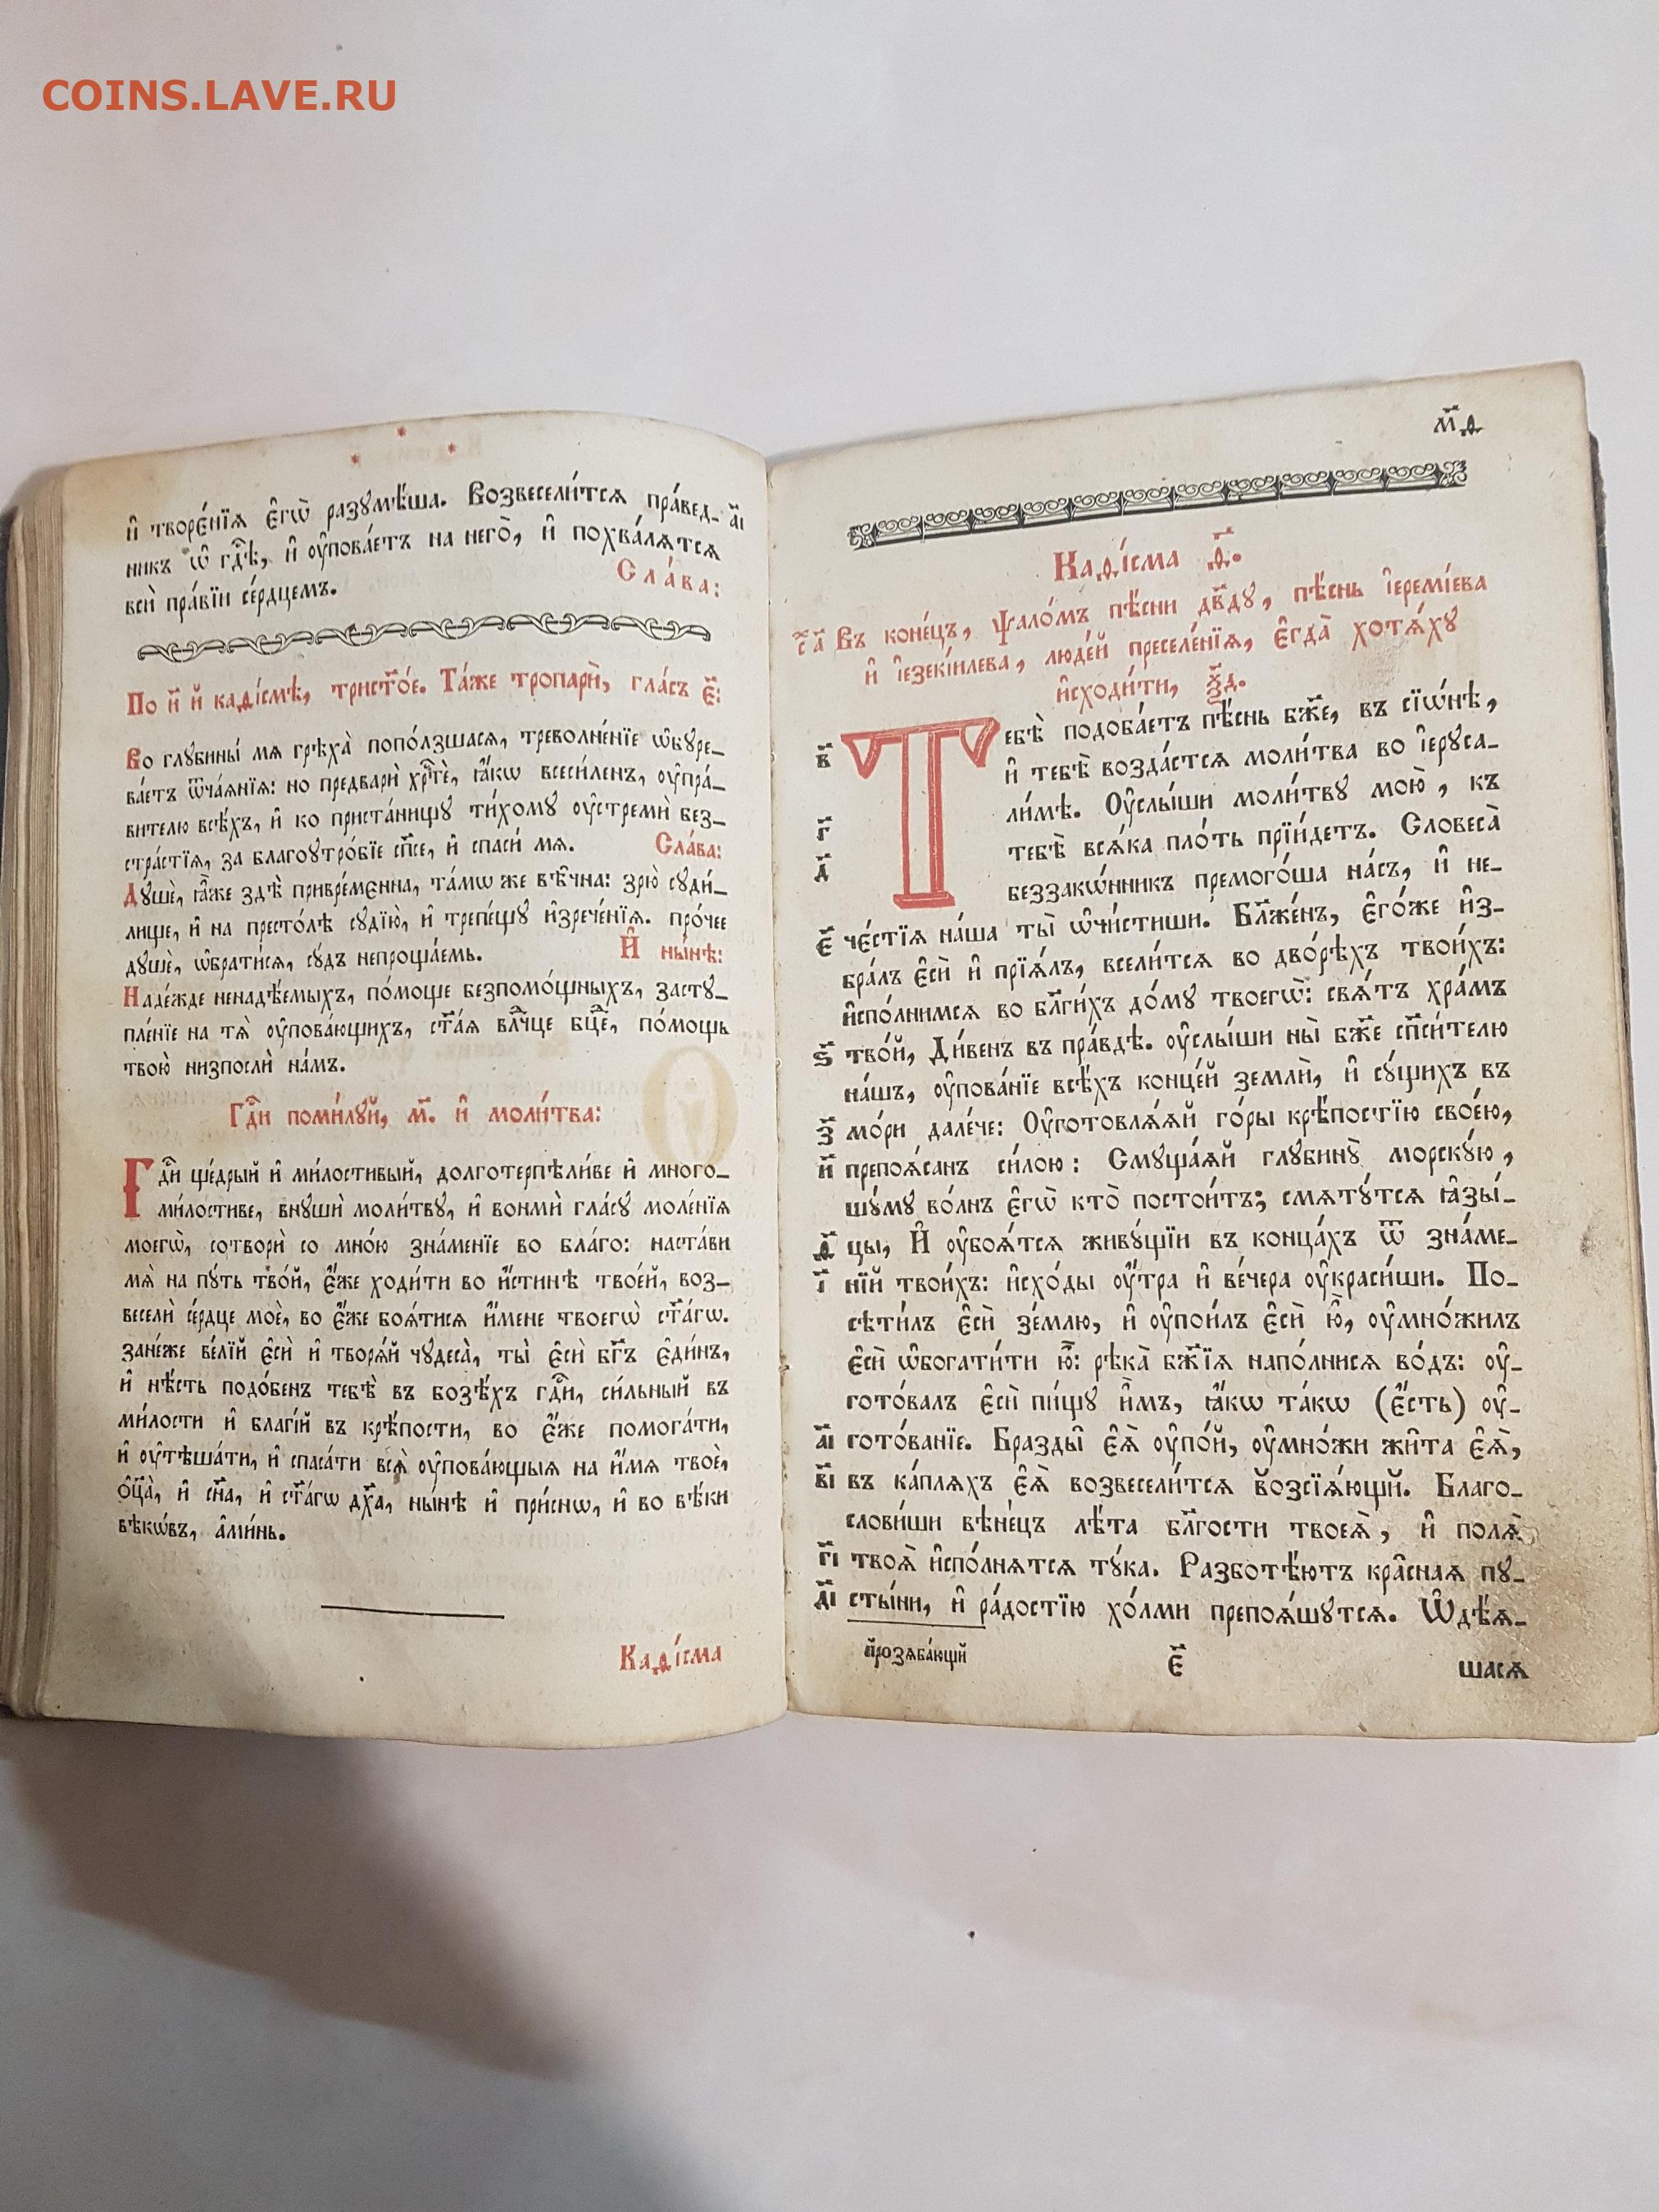 COINS.LAVE.RU
и҆ творє́нїѧ є҆гѡ̀ разꙋмѣ́ша. Возвесели́тсѧ пра́вед- а҃і
никъ ѡ҆ гдⷭ҇ѣ, и҆ ᲂу҆пова́етъ на него̀, и҆ похва́лѧтсѧ
всѝ пра́вїи се́рдцемъ.
Сла́ва:
По и҃ й каѳі́смѣ, трист҃о́е. Та́же тропарѝ, гла́съ є҃:
Во глꙋбины́ мѧ грѣха̀ попо́лзшасѧ, треволне́нїе ѡ҆бꙋре-
ва́етъ ѿча́ѧнїѧ: но предварѝ хрⷭ҇тѐ, ꙗ҆́кѡ всеси́ленъ, ᲂу҆пра́-
вителю всѣ́хъ, и҆ ко приста́нищꙋ ти́хомꙋ ᲂу҆стремѝ без-
стра́стїѧ, за благоꙋтро́бїе сп҃се, и҆ спаси́ мѧ. Сла́ва:
Дꙋшѐ, ꙗ҆̀же здѣ̀ привре́мєнна, та́мѡ же вѣ̑чна: зрю̀ сꙋди́-
лище, и҆ на престо́лѣ сꙋдїю̀, и҆ трепе́щꙋ и҆зрече́нїѧ. про́чее
дꙋшѐ, ѡ҆брати́сѧ, сꙋ́дъ непроща́емь. И҆ ны́нѣ:
Наде́жде ненадѣ́емыхъ, по́моще безпомо́щныхъ, застꙋ-
пле́нїе на тѧ̀ ᲂу҆пова́ющихъ, ст҃а́ѧ влⷣчце бцⷣе, по́мощь
твою̀ низпослѝ на́мъ.
Гдⷭ҇и поми́лꙋй, м҃. и҆ моли́тва:
Гдⷭ҇и ще́дрый и҆ ми́лостивый, долготерпѣли́ве и҆ много-
ми́лостиве, внꙋшѝ моли́твꙋ, и҆ вонмѝ гла́сꙋ моле́нїѧ
моегѡ̀, сотворѝ со мно́ю зна́менїе во бла́го: наста́ви
мѧ̀ на пꙋ́ть тво́й, є҆́же ходи́ти во и҆́стинѣ твое́й, воз-
веселѝ се́рдце моѐ, во є҆́же боѧ́тисѧ и҆́мене твоегѡ̀ ст҃а́гѡ.
зане́же ве́лїй є҆сѝ и҆ творѧ́й чꙋдеса̀, ты̀ є҆сѝ бг҃ъ є҆ди́нъ,
и҆ нѣ́сть подо́бенъ тебѣ̀ въ бозѣ́хъ гдⷭ҇и, си́льный въ
ми́лости и҆ благі́й въ крѣ́пости, во є҆́же помога́ти,
и҆ ᲂу҆тѣша́ти, и҆ спаса́ти всѧ̀ ᲂу҆пова́ющыѧ на и҆́мѧ твоѐ,
ѻ҆ц҃а̀, и҆ сн҃а, и҆ ст҃а́гѡ дх҃а, ны́нѣ и҆ при́снѡ, и҆ во вѣ́ки
вѣкѡ́въ, а҆ми́нь.
Каѳі́сма
м҃д
Каѳі́сма ѳ҃.
ѯ҃а҃ Въ коне́цъ, ѱало́мъ пѣ́сни дв҃дꙋ, пѣ́снь і҆еремі́ева
и҆ і҆езекі́илева, люде́й преселе́нїѧ, є҆гда̀ хотѧ́хꙋ
и҆сходи́ти, ѯ҃д.
в҃ Тебѣ̀ подоба́етъ пѣ́снь бж҃е, въ сїѡ́нѣ,
и҆ тебѣ̀ возда́стсѧ моли́тва во і҆ерꙋса-
ли́мѣ. Оу҆слы́ши моли́твꙋ мою̀, къ
г҃ тебѣ̀ всѧ́ка пло́ть прїи́детъ. Словеса̀
д҃ беззако́нникъ премого́ша на́съ, и҆ не-
є҃ че́стїѧ на́ша ты̀ ѡ҆чи́стиши. Бл҃же́нъ, є҆го́же и҆з-
бра́лъ є҆сѝ и҆ прїѧ́лъ, всели́тсѧ во дво́рѣхъ твои́хъ:
и҆спо́лнимсѧ во бл҃ги́хъ до́мꙋ твоегѡ̀: свѧ́тъ хра́мъ
ѕ҃ тво́й, Ди́венъ въ пра́вдѣ. ᲂу҆слы́ши ны̀ бж҃е сп҃си́телю
на́шъ, ᲂу҆пова́нїе всѣ́хъ конце́й землѝ, и҆ сꙋ́щихъ въ
з҃ мо́ри дале́че: Оу҆готовлѧ́ѧй го́ры крѣ́постїю свое́ю,
и҃ препоѧ́санъ си́лою: Смꙋща́ѧй глꙋбинꙋ̀ морскꙋ́ю,
шꙋ́мꙋ во́лнъ є҆гѡ̀ кто̀ постои́тъ; смѧтꙋ́тсѧ ꙗ҆зы́-
ѳ҃ цы, И҆ ᲂу҆боѧ́тсѧ живꙋ́щїи въ конца́хъ ѿ зна́ме-
і҃ нїй твои́хъ: и҆схо́ды ᲂу҆́тра и҆ ве́чера ᲂу҆краси́ши. По-
сѣти́лъ є҆сѝ зе́млю, и҆ ᲂу҆пои́лъ є҆сѝ ю҆̀, ᲂу҆мно́жилъ
є҆сѝ ѡ҆богати́ти ю҆̀: рѣка̀ бж҃їѧ напо́лнисѧ во́дъ: ᲂу҆-
гото́валъ є҆сѝ пи́щꙋ и҆̀мъ, ꙗ҆́кѡ та́кѡ (є҆́сть) ᲂу҆-
а҃і гото́ванїе. Бразды̑ є҆ѧ̀ ᲂу҆по́й, ᲂу҆мно́жи жи̑та є҆ѧ̀,
в҃і въ ка́плѧхъ є҆ѧ̀ возвесели́тсѧ возсїѧ́ющи. Благо-
слови́ши вѣне́цъ лѣ́та бл҃гости твоеѧ̀, и҆ полѧ̀
г҃і твоѧ̀ и҆спо́лнѧтсѧ тꙋ́ка. Разботѣ́ютъ кра̑снаѧ пꙋ-
д҃і сты́ни, и҆ ра́достїю хо́лми препоѧ́шꙋтсѧ. Ѡ҆дѣ́ѧ-
прозѧба́ющи є҃ шасѧ